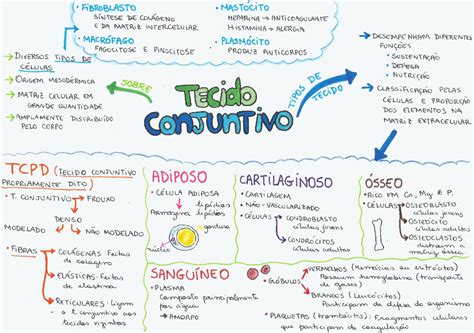 • FIBROBLASTO
SÍNTESE DE COLÁGENO
E DA MATRIZ INTERCELULAR
• MACRÓFAGO
FAGOCITOSE E PINOCITOSE
• MASTÓCITO
HEPARINA → ANTICOAGULANTE
HISTAMINA → ALERGIA
• PLASMÓCITO
PRODUZ ANTICORPOS
→ DIVERSOS TIPOS DE
CÉLULAS
→ ORIGEM MESODÉRMICA
→ MATRIZ CELULAR EM
GRANDE QUANTIDADE
→ AMPLAMENTE DISTRIBUÍDO
PELO CORPO
SOBRE
TECIDO
CONJUNTIVO
TIPOS DE
TECIDO
→ DESEMPENHAM DIFERENTES
FUNÇÕES
• SUSTENTAÇÃO
• DEFESA
• NUTRIÇÃO
→ CLASSIFICAÇÃO PELAS
CÉLULAS E PROPORÇÃO
DOS ELEMENTOS NA
MATRIZ EXTRACELULAR
TCPD (TECIDO CONJUNTIVO
PROPRIAMENTE DITO)
• T. CONJUNTIVO → FROUXO
DENSO
MODELADO NÃO MODELADO
• FIBRAS
→ COLÁGENAS: Feitas
de colágeno
→ ELÁSTICAS: Feitas de
elastina
→ RETICULARES: Ligam
o t. conjuntivo aos
tecidos vizinhos
ADIPOSO
• CÉLULA ADIPOSA
Armazena lipídios
gordura
núcleo
CARTILAGINOSO
• CARTILAGEM
• NÃO-VASCULARIZADO
• CÉLULAS → CONDROBLASTO
células jovens
→ CONDRÓCITOS
células adultas
ÓSSEO
• Rico em Ca, Mg e P.
• CÉLULAS → OSTEOBLASTO
células jovens
→ OSTEÓCITOS
células adultas
→ OSTEOCLASTOS
a
matriz óssea
SANGUÍNEO
• PLASMA
Composto principalmente
por água
→ AMORFO
• GLÓBULOS
VERMELHOS (hemácias ou eritrócitos)
Possuem hemoglobina (transporte)
BRANCOS (Leucócitos)
Participam da defesa do organismo
• PLAQUETAS (trombócitos): Fragmentos celulares
que participam da coagulação